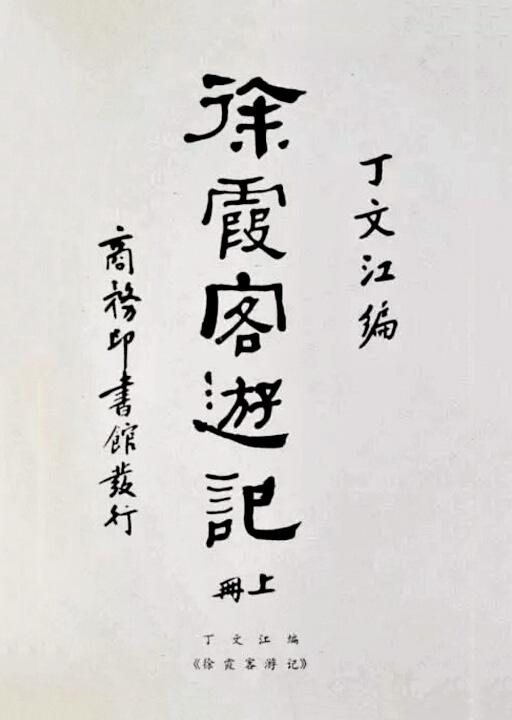 丁文江编
徐霞客遊記
上冊
商務印書館發行
丁文江编
《徐霞客游记》